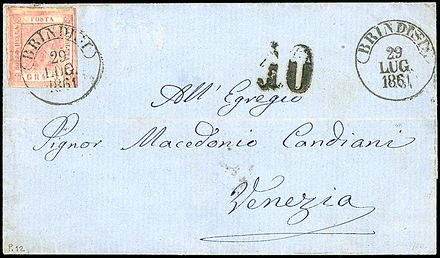 POSTA
GR
BRINDISI
29
LUG.
1861
10
BRINDISI
29
LUG.
1861
All' Egregio
Signor Macedonio Candiani
Venezia
P. 12